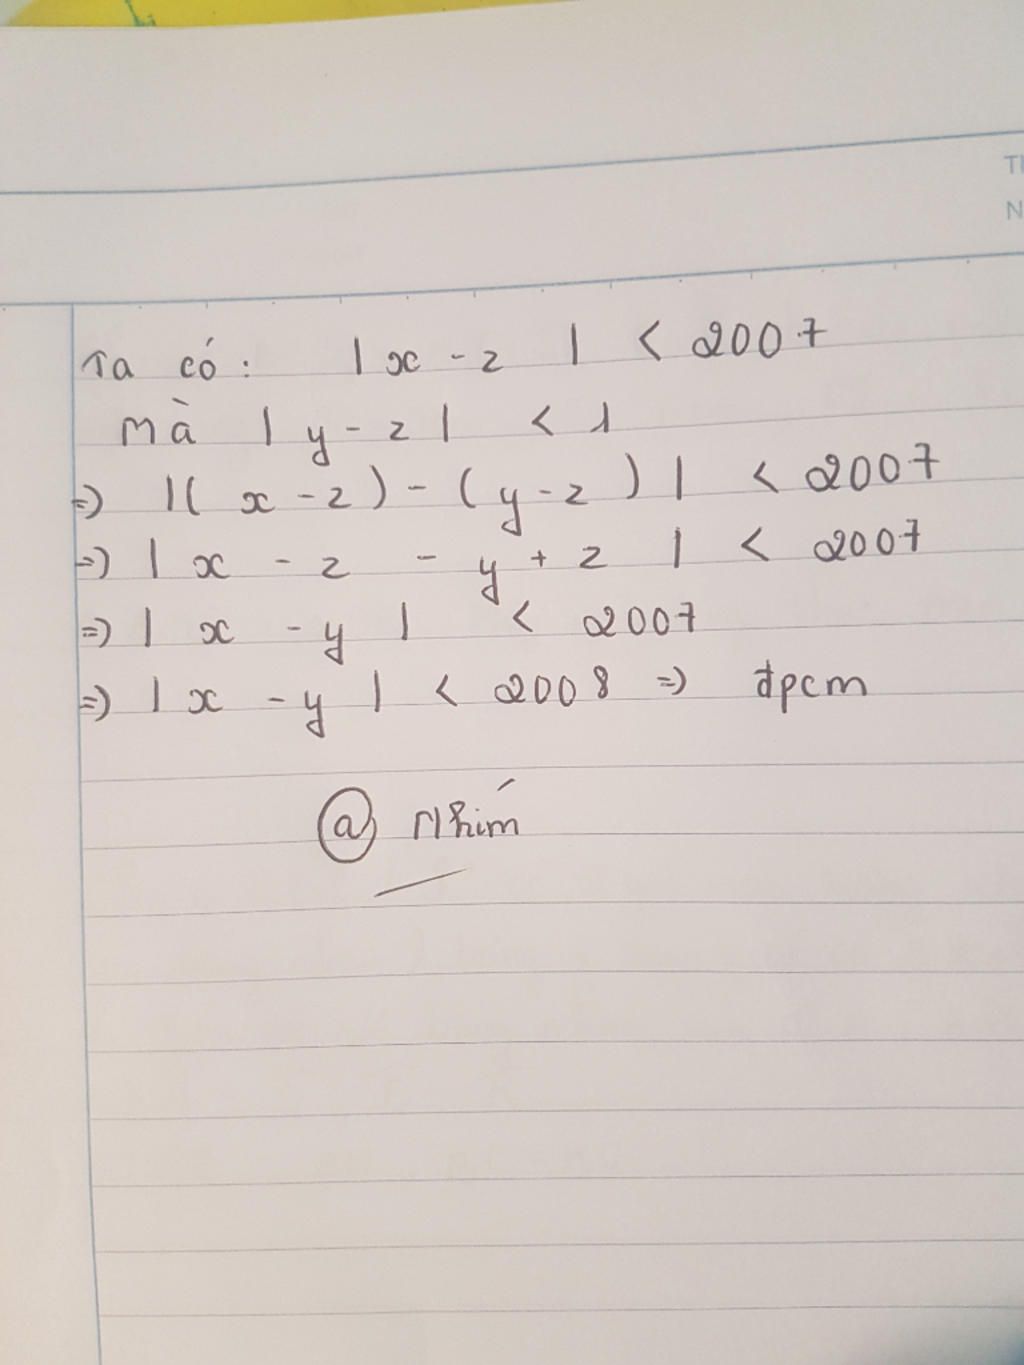 TI
N
Ta có: | x - z | < 2007
Mà | y - z | < 1
=> |( x - z ) - ( y - z ) | < 2007
=> | x - z - y + z | < 2007
=> | x - y | < 2007
=> | x - y | < 2008 => đpcm
@ Nhím